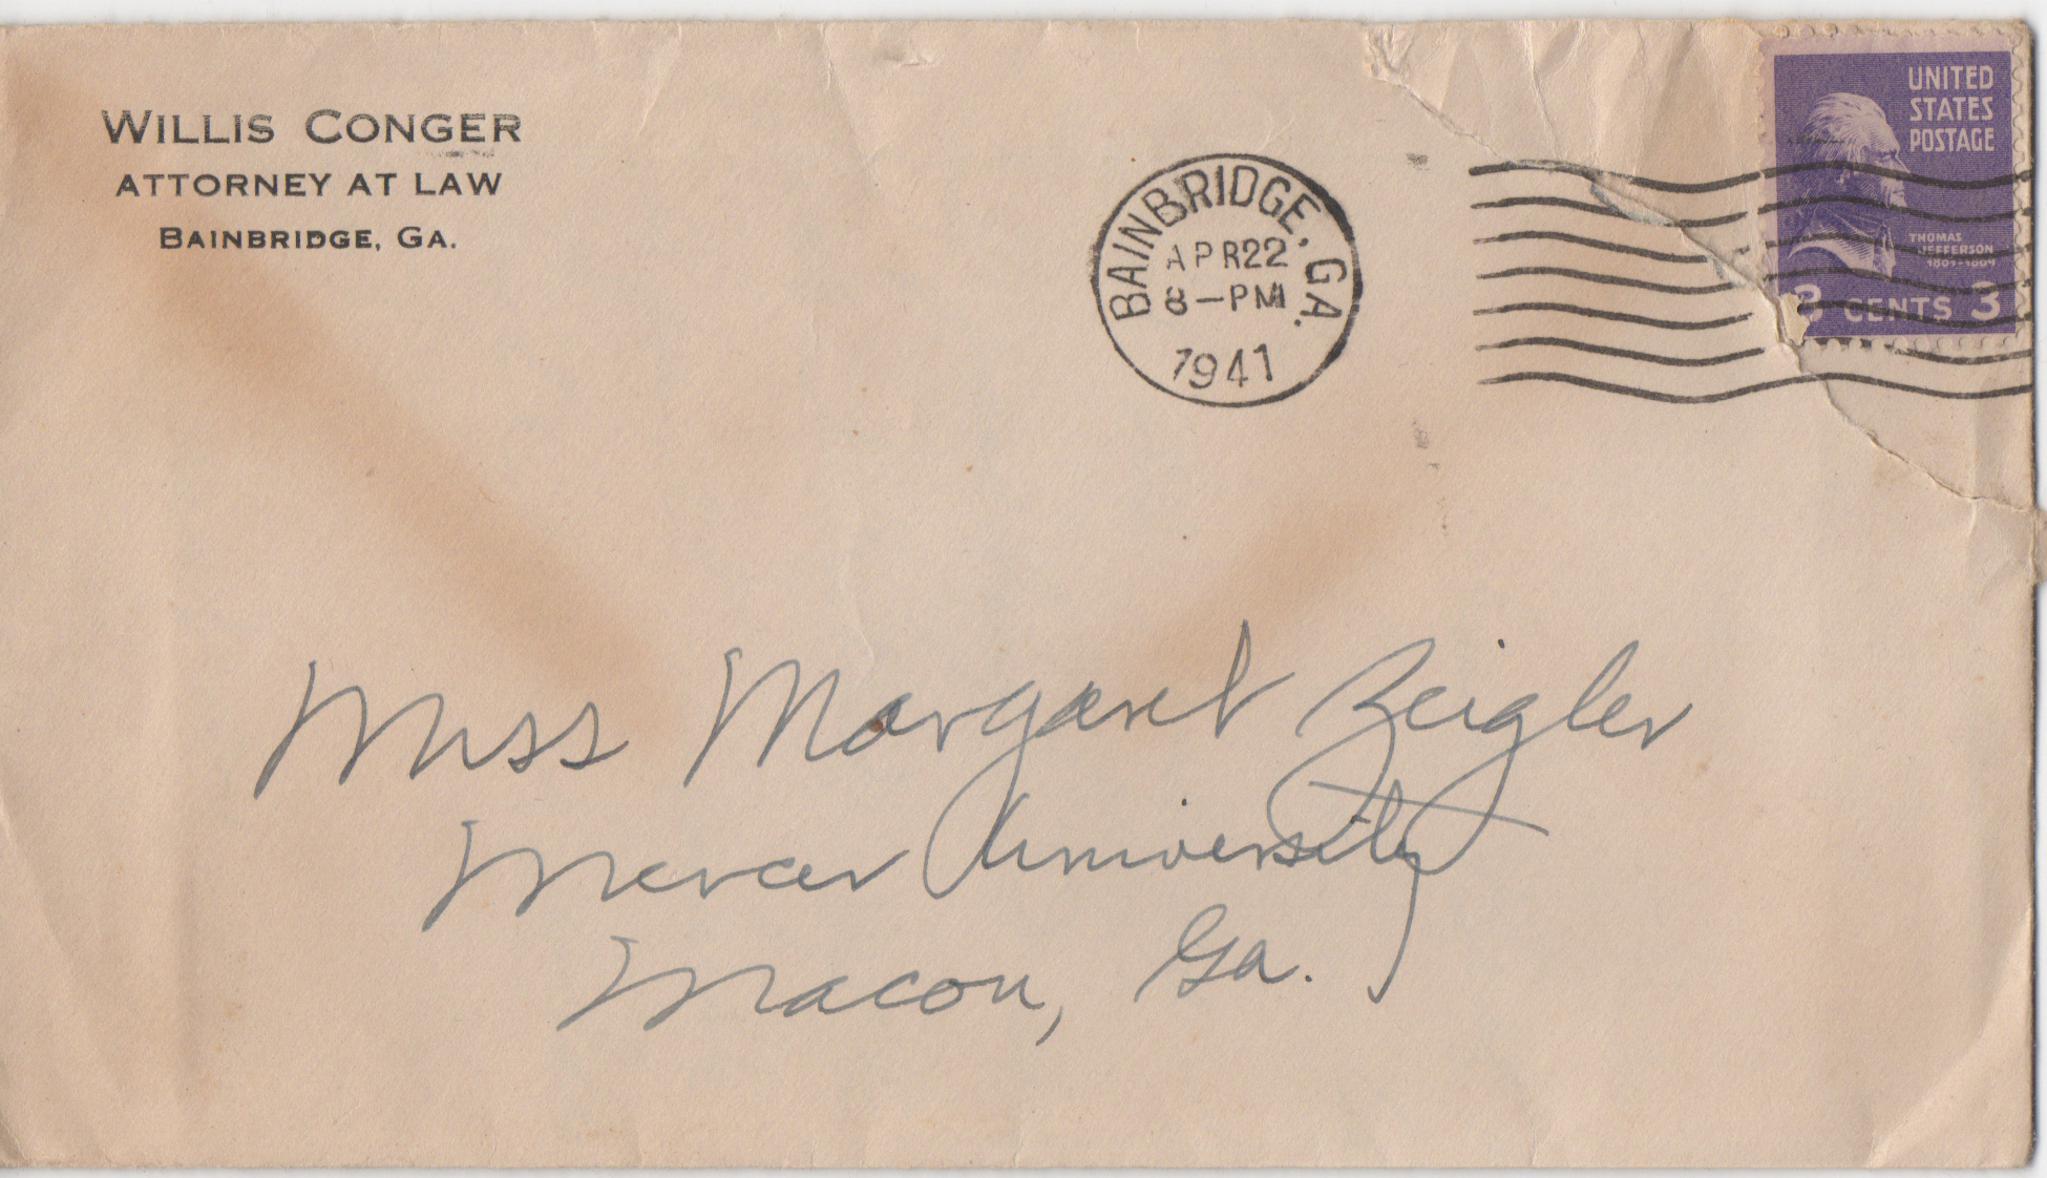 WILLIS CONGER
ATTORNEY AT LAW
BAINBRIDGE, GA.
BAINBRIDGE, GA.
APR22
8-PM
1941
UNITED
STATES
POSTAGE
THOMAS
JEFFERSON
1801-1809
3 CENTS 3
Miss Margaret Zeigler
Mercer University
Macon, Ga.